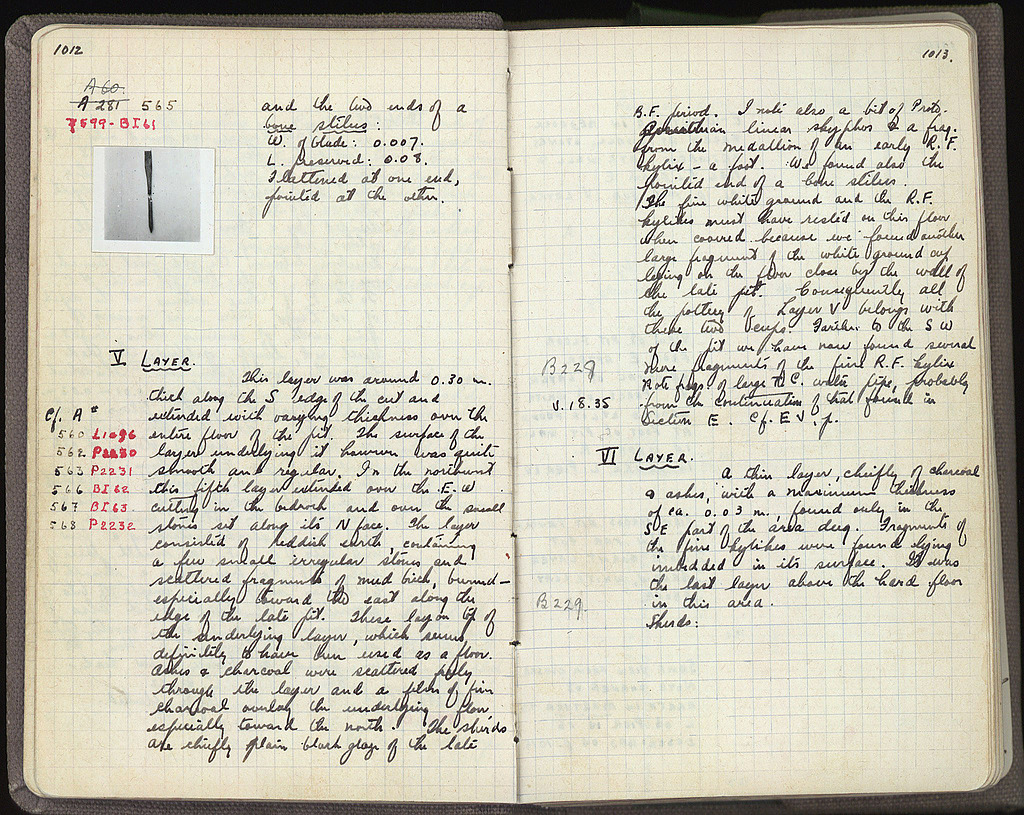 1012
A 60.
A 281 565
7599-BI61
and the two ends of a
bone stilus:
W. of blade: 0.007.
L. preserved: 0.08.
Flattened at one end,
pointed at the other.
V LAYER.
This layer was around 0.30 m.
thick along the S edge of the cut and
extended with varying thickness over the
entire floor of the pit. The surface of the
layer underlying it however was quite
smooth and regular. In the northwest
this fifth layer extended over the E.W
cutting in the bedrock and over the small
stones set along its N face. The layer
consisted of reddish earth, containing
a few small irregular stones and
scattered fragments of mud brick, burned –
especially toward the east along the
edge of the late pit. These lay on top of
the underlying layer, which seems
definitely to have been used as a floor.
Ashes & charcoal were scattered
through the layer and a film of fine
charcoal overlay the underlying floor
especially toward the north. The sherds
are chiefly plain black glaze of the late
Cf. A"
560 L1096
562 P2230
563 P2231
566 BI62
567 BI63
568 P2232
1013.
B.F. period. I note also a bit of Proto-
Corinthian linear skyphos & a frag.
from the medallion of an early R.F.
kylix – a foot. We found also the
pointed end of a bone stilus.
The fine white ground and the R.F.
kylikes must have rested on this floor
when covered because we found another
large fragment of the white ground cup
lying on the floor close by the wall of
the late pit. Consequently all
the pottery of Layer V belongs with
these two cups. Farther to the S W
of the pit we have now found several
more fragments of the fine R.F. kylix
Note frags of large T.C. water pipe, probably
from the continuation of that found in
Section E. Cf. E V. f.
B228
V.18.35
VI LAYER.
A thin layer, chiefly of charcoal
& ashes, with a maximum thickness
of ca. 0.03 m., found only in the
S.E part of the area dug. Fragments of
the fine kylikes were found lying
imbedded in its surface. It was
the last layer above the hard floor
in this area.
Sherds:
B229.